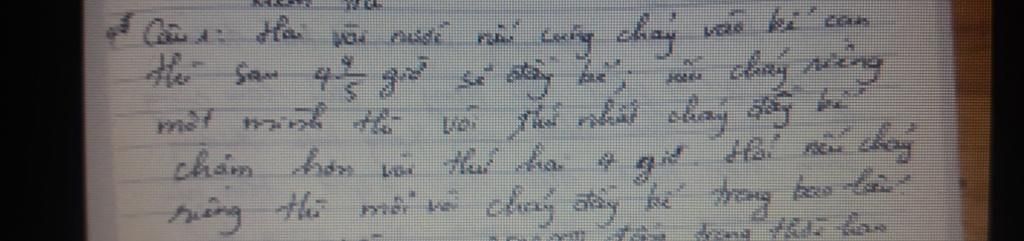 Câu 1: Hai vòi nước nếu cùng chảy vào bể cạn
thì sau 4 4/5 giờ sẽ đầy bể, nếu chảy riêng
một mình thì vòi thứ nhất chảy đầy bể
chậm hơn vòi thứ hai 4 giờ. Hỏi nếu chảy
riêng thì mỗi vòi chảy đầy bể trong bao lâu